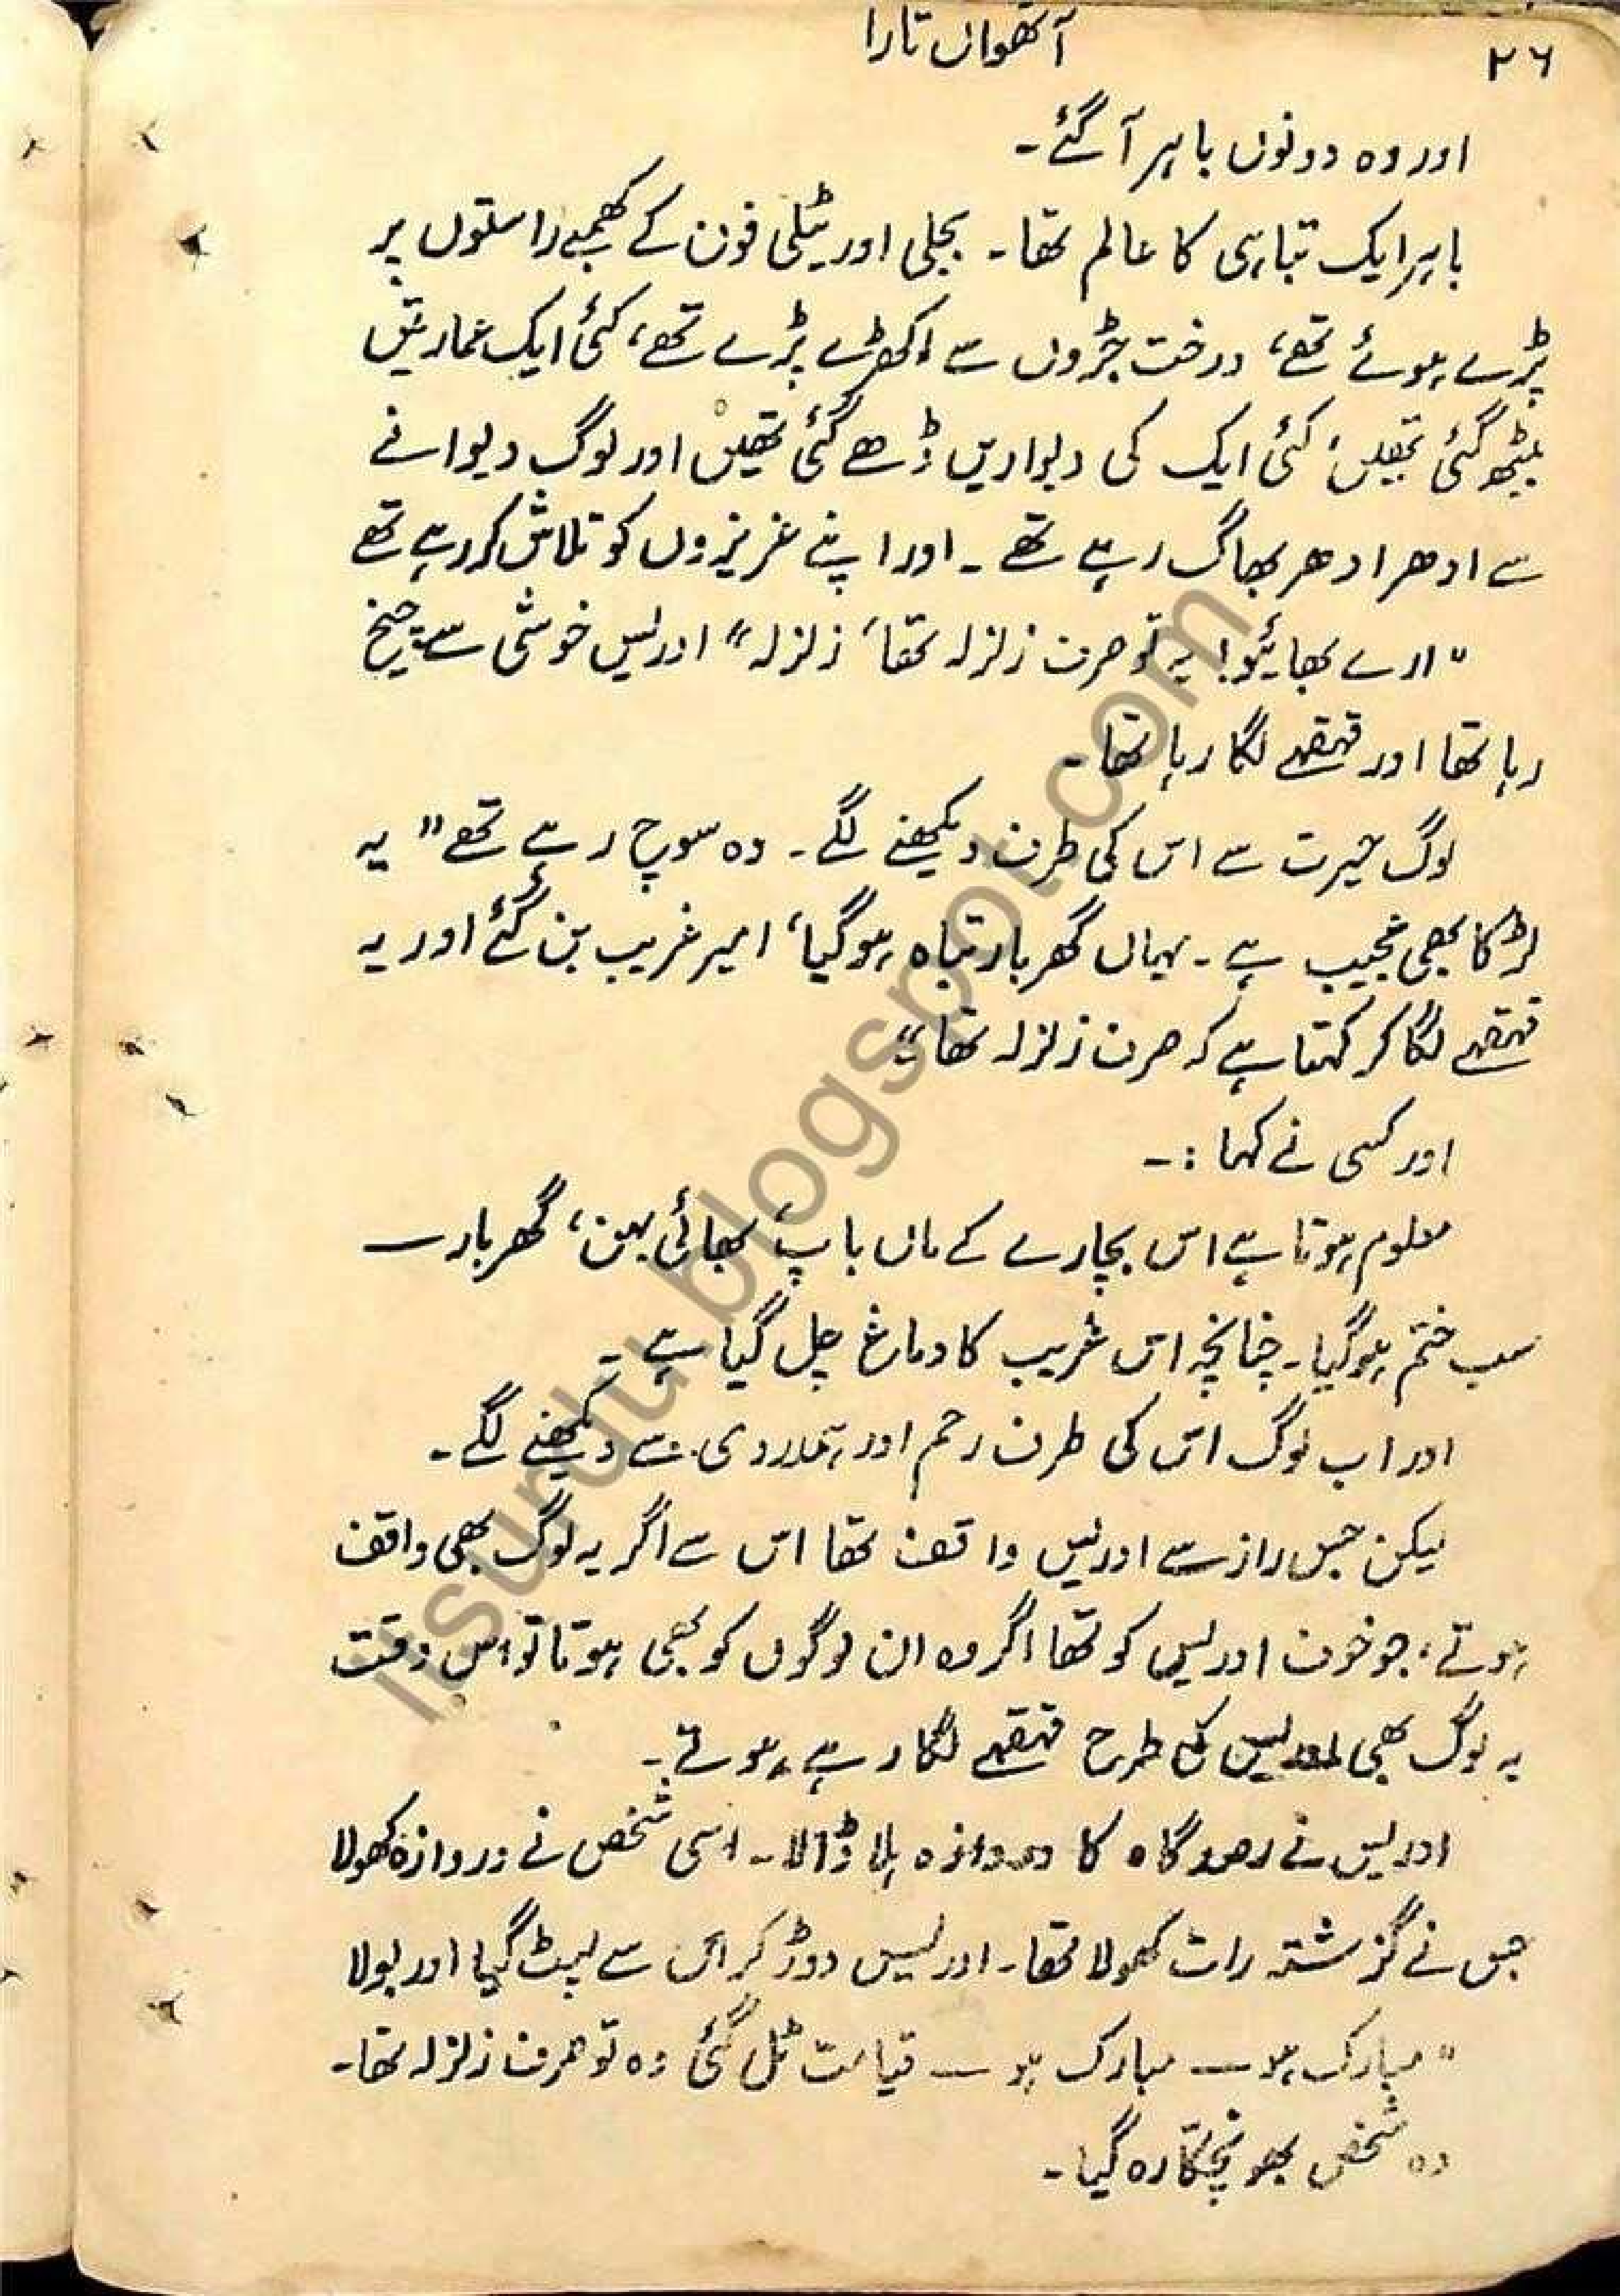 ۲۶
آٹھواں تارا
اور وہ دونوں باہر آ گئے۔
باہر ایک تباہی کا عالم تھا۔ بجلی اور ٹیلی فون کے کھمبے راستوں پر
پڑے ہوئے تھے، درخت جڑوں سے اکھڑے پڑے تھے، کئی ایک عمارتیں
بیٹھ گئی تھیں، کئی ایک کی دیواریں ڈھے گئی تھیں اور لوگ دیوانے
سے ادھر ادھر بھاگ رہے تھے۔ اور اپنے عزیزوں کو تلاش کر رہے تھے
"ارے بھائیو! یہ تو صرف زلزلہ تھا، زلزلہ" ادریس خوشی سے چیخ
رہا تھا اور قہقہے لگا رہا تھا۔
لوگ حیرت سے اس کی طرف دیکھنے لگے۔ وہ سوچ رہے تھے "یہ
لڑکا بھی عجیب ہے۔ یہاں گھر بار تباہ ہو گیا، امیر غریب بن گئے اور یہ
قہقہے لگا کر کہتا ہے کہ صرف زلزلہ تھا"
اور کسی نے کہا :۔
معلوم ہوتا ہے اس بچارے کے ماں باپ، بھائی بہن، گھر بار —
سب ختم ہو گیا۔ چنانچہ اس غریب کا دماغ چل گیا ہے۔
اور اب لوگ اس کی طرف رحم اور ہمدردی سے دیکھنے لگے۔
لیکن جس راز سے ادریس واقف تھا اس سے اگر یہ لوگ بھی واقف
ہوتے، جو خوف ادریس کو تھا اگر وہ ان لوگوں کو بھی ہوتا تو اس وقت
یہ لوگ بھی ادریس کی طرح قہقہے لگا رہے ہوتے۔
ادریس نے رصدگاہ کا دروازہ ہلا ڈالا۔ اسی شخص نے دروازہ کھولا
جس نے گزشتہ رات کھولا تھا۔ ادریس دوڑ کر اس سے لپٹ گیا اور بولا
"مبارک ہو — مبارک ہو — قیامت ٹل گئی وہ تو صرف زلزلہ تھا۔
وہ شخص بھونچکا رہ گیا۔
itsurdu.blogspot.com